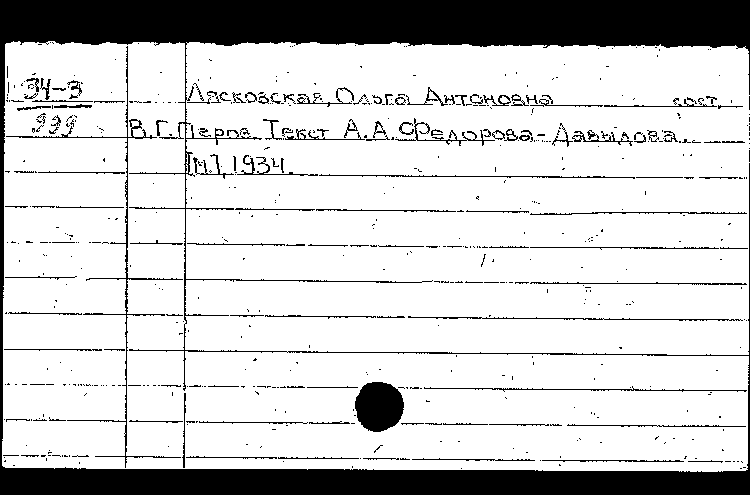 34-3 Лясковская, Ольга Антоновна сост.
999 В.Г. Перов. Текст А.А. Федорова-Давыдова.
[М.], 1934.